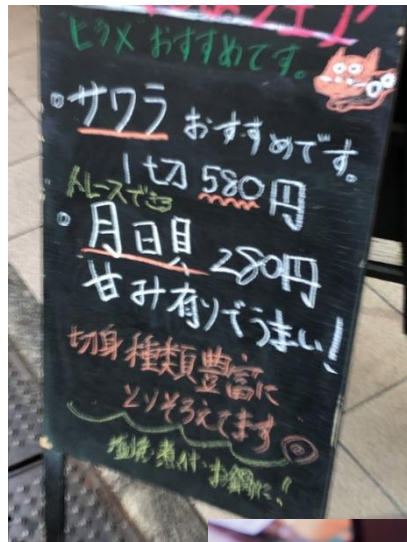 ヒラメ おすすめです。
サワラ おすすめです。
1切 580円
トレースできる
月日貝 280円
甘み有りでうまい!
切身種類豊富に
とりそろえてます
塩焼・煮付・お鍋に!!